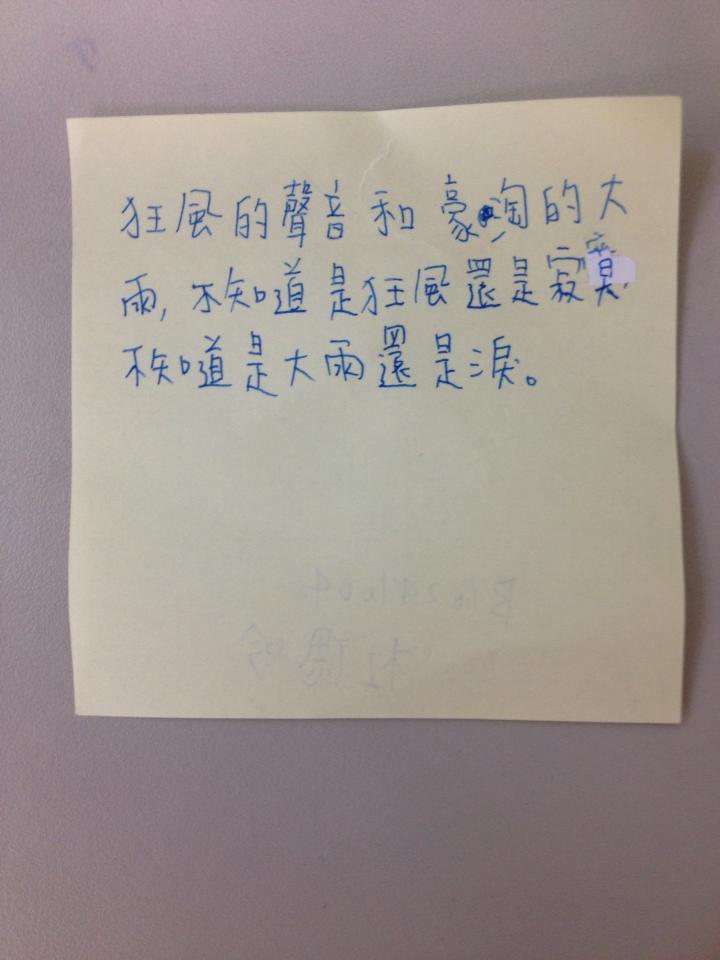 狂風的聲音和豪淘的大
雨,不知道是狂風還是寂寞,
不知道是大雨還是淚。